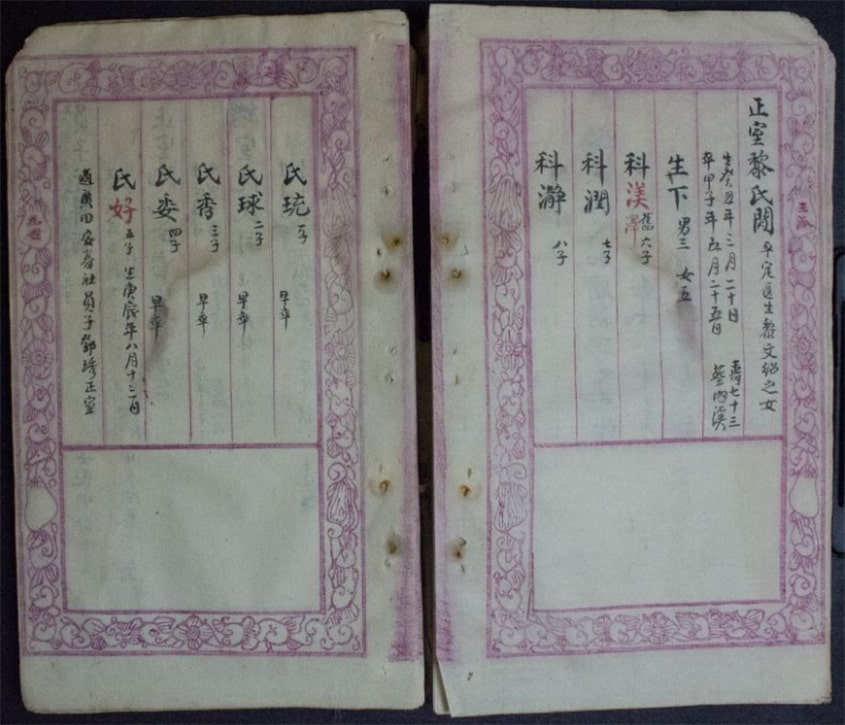 正室黎氏 生黎文紹之女
生癸丑年三月二十日
卒甲子年五月二十五日
壽七十三
葬内
生下 男三 女五
科渼 六子
澤
科潤 七子
科瀞 八子
氏琉 早卒
氏球 二子 早卒
氏香 三子 早卒
氏委 四子 早卒
氏好 五子 生庚辰年八月十二日
適廣田安春社員子鄧 正室